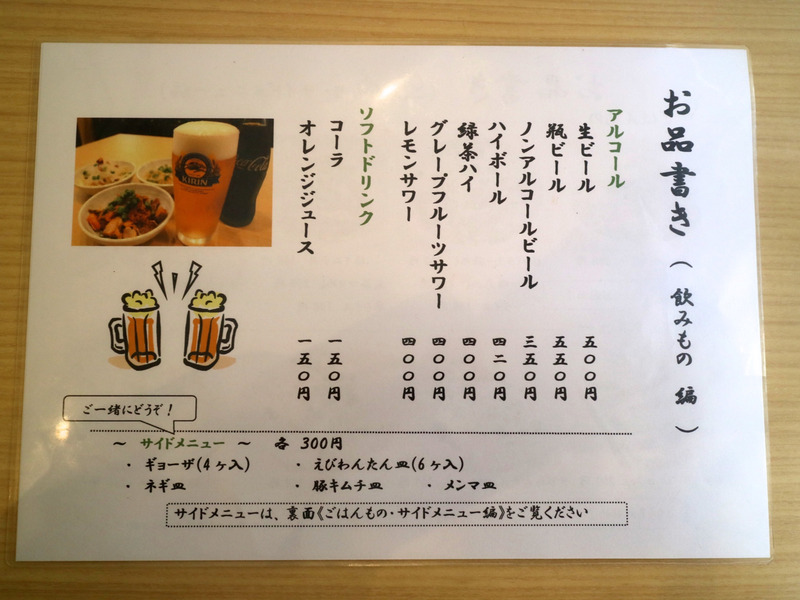 お品書き（飲みもの 編）
アルコール
生ビール 五〇〇円
瓶ビール 五五〇円
ノンアルコールビール 三五〇円
ハイボール 四二〇円
緑茶ハイ 四〇〇円
グレープフルーツサワー 四〇〇円
レモンサワー 四〇〇円
ソフトドリンク
コーラ 一五〇円
オレンジジュース 一五〇円
KIRIN
Coca-Cola
ご一緒にどうぞ！
～ サイドメニュー ～ 各 300円
・ ギョーザ(4ヶ入) ・ えびわんたん皿(6ヶ入)
・ ネギ皿 ・ 豚キムチ皿 ・ メンマ皿
サイドメニューは、裏面《ごはんもの・サイドメニュー編》をご覧ください